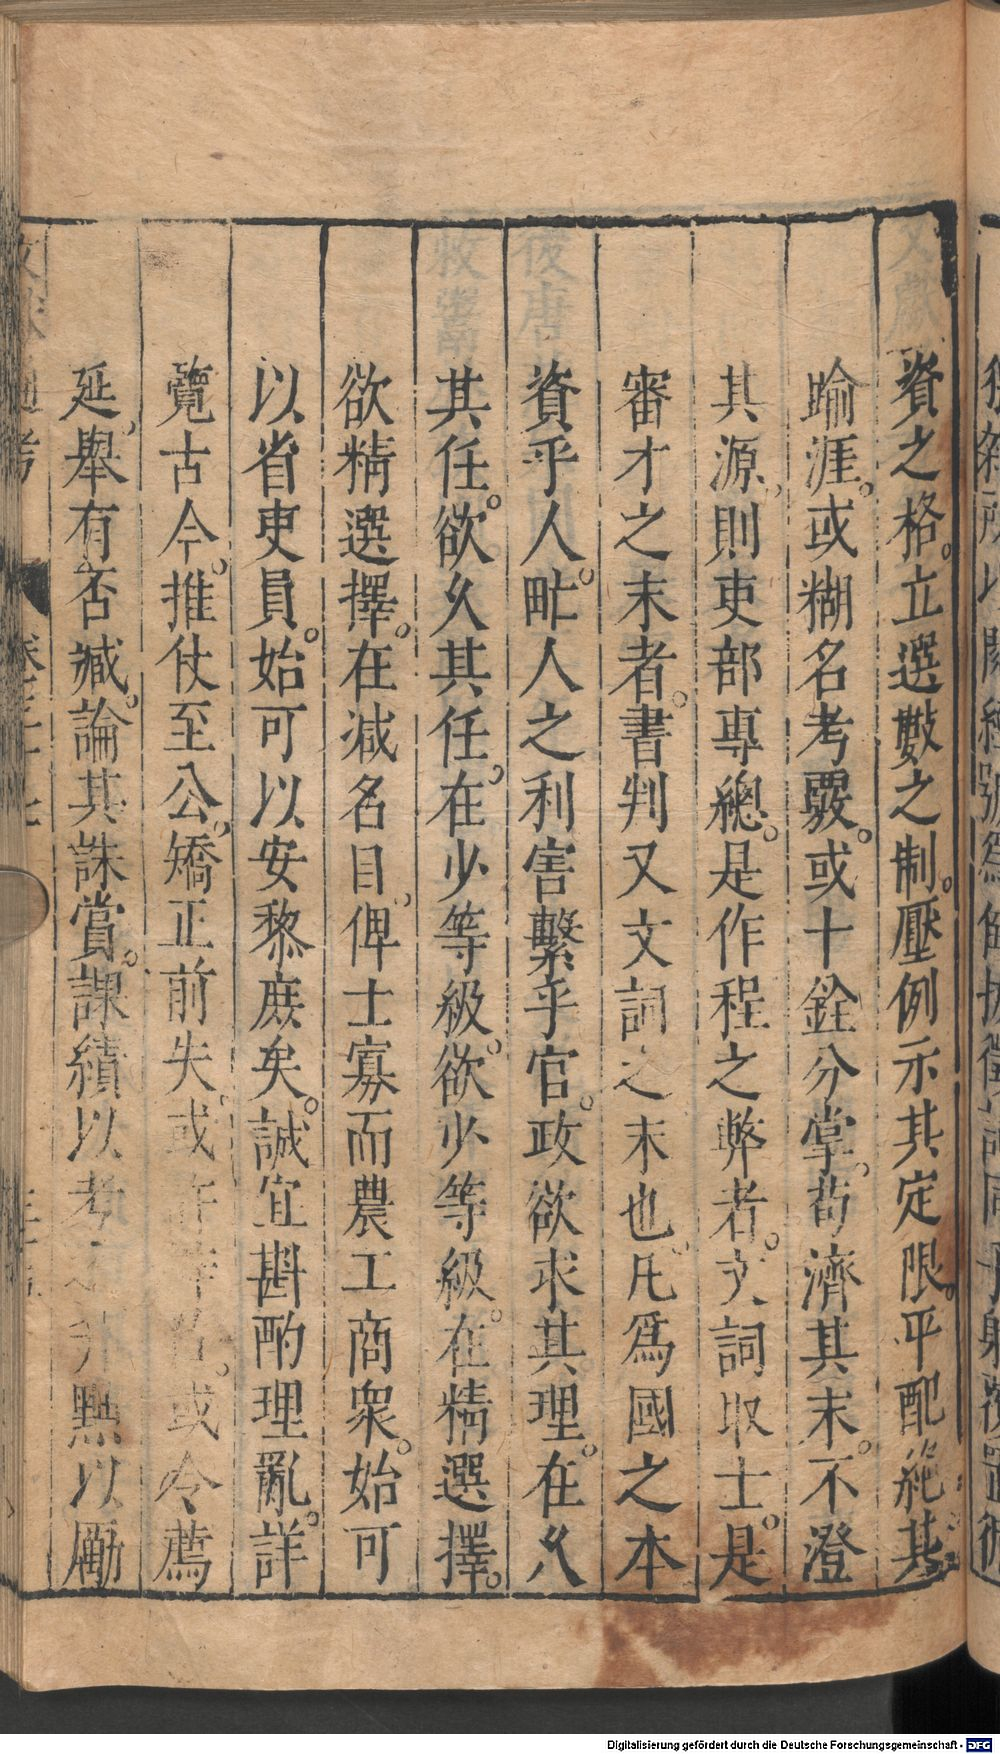 資之格。立選數之制。壓例示其定限。平配絶其
踰涯。或糊名考覈。或十銓分掌。苟濟其末。不澄
其源。則吏部專總。是作程之弊者。文詞取士。是
審才之末者。書判又文詞之末也。凡爲國之本
資乎人。甿人之利害繫乎官。政欲求其理。在久
其任。欲久其任。在少等級。欲少等級。在精選擇。
欲精選擇。在減名目。俾士寡而農工商衆。始可
以省吏員。始可以安黎庶矣。誠宜斟酌理亂。詳
覽古今。推仗至公。矯正前失。或許 。或令薦
延。舉有否臧。論其誅賞。課績以考 升黜以勵
Digitalisierung gefördert durch die Deutsche Forschungsgemeinschaft - DFG